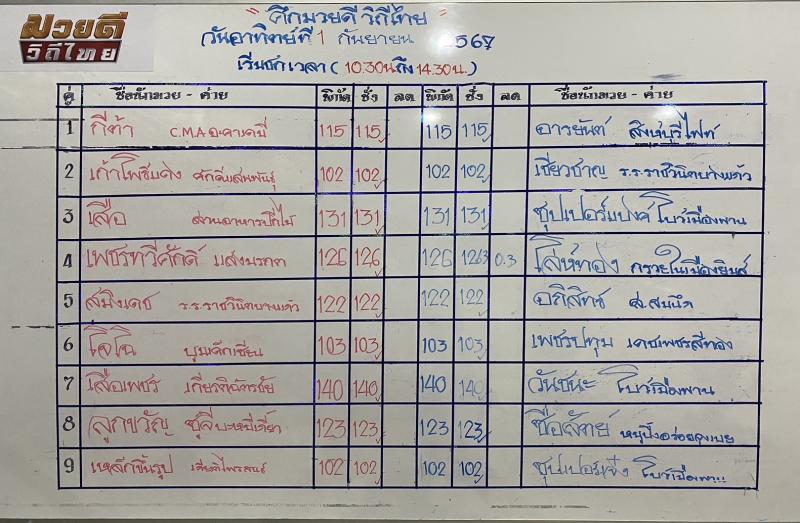 มวยดี
วิถีไทย
" ศึกมวยดีวิถีไทย "
วันอาทิตย์ที่ 1 กันยายน 2567
เริ่มชกเวลา (10.30น ถึง 14.30น.)
คู่ ชื่อนักมวย - ค่าย พิกัด ชั่ง ลด พิกัด ชั่ง ลด ชื่อนักมวย - ค่าย
1 กีต้า C.M.A อะคาเดมี่ 115 115 115 115 อารยันต์ สิงห์บุรีไฟท์
2 เก้าโพธิ์แดง ศักดิ์แสนพันธุ์ 102 102 102 102 เชี่ยวชาญ ร.ร.ราชวินิตบางแก้ว
3 เสือ สวนอาหารปีกไม้ 131 131 131 131 ซุปเปอร์แบงค์ โบว์เมืองพาน
4 เพชรทวีศักดิ์ แสงมรกต 126 126 126 126.3 0.3 โล่ห์ทอง
5 ร.ร.ราชวินิตบางแก้ว 122 122 122 122 อภิสิทธิ์ ส.สมนึก
6 โจโจ้ 103 103 103 103 เพชรปทุม เดชเพชรสีทอง
7 เสือเพชร เกียรติฉัตรชัย 140 140 140 140 วันชนะ โบว์เมืองพาน
8 ลูกขวัญ ชูลี่บะหมี่เกี๊ยว 123 123 123 123 ซื่อสัตย์ หมูปิ้งอร่อยจุงเบย
9 เหล็กขึ้นรูป 102 102 102 102 โบว์เมืองพาน